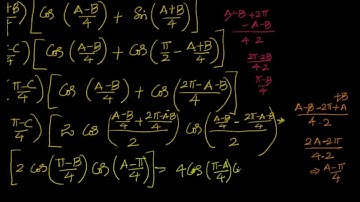 +B/4) [Cos (A-B/4) + Sin (A+B/4)]
π-C/4) [Cos (A-B/4) + Cos (π/2 - A+B/4)]
π-C/4) [Cos (A-B/4) + Cos (2π-A-B/4)]
π-C/4) [2 Cos (A-B/4 + 2π-A-B/4 / 2) Cos (A-B/4 - 2π-A-B/4 / 2)
[2 Cos (π-B/4) Cos (A-π/4)] = 4 Cos (π-A/4) C
A-B+2π
-A-B
4.2
2π-2B
4.2
π-B
4
+B
A-B-2π+A
4.2
2A-2π
4.2
⇒ A-π
4